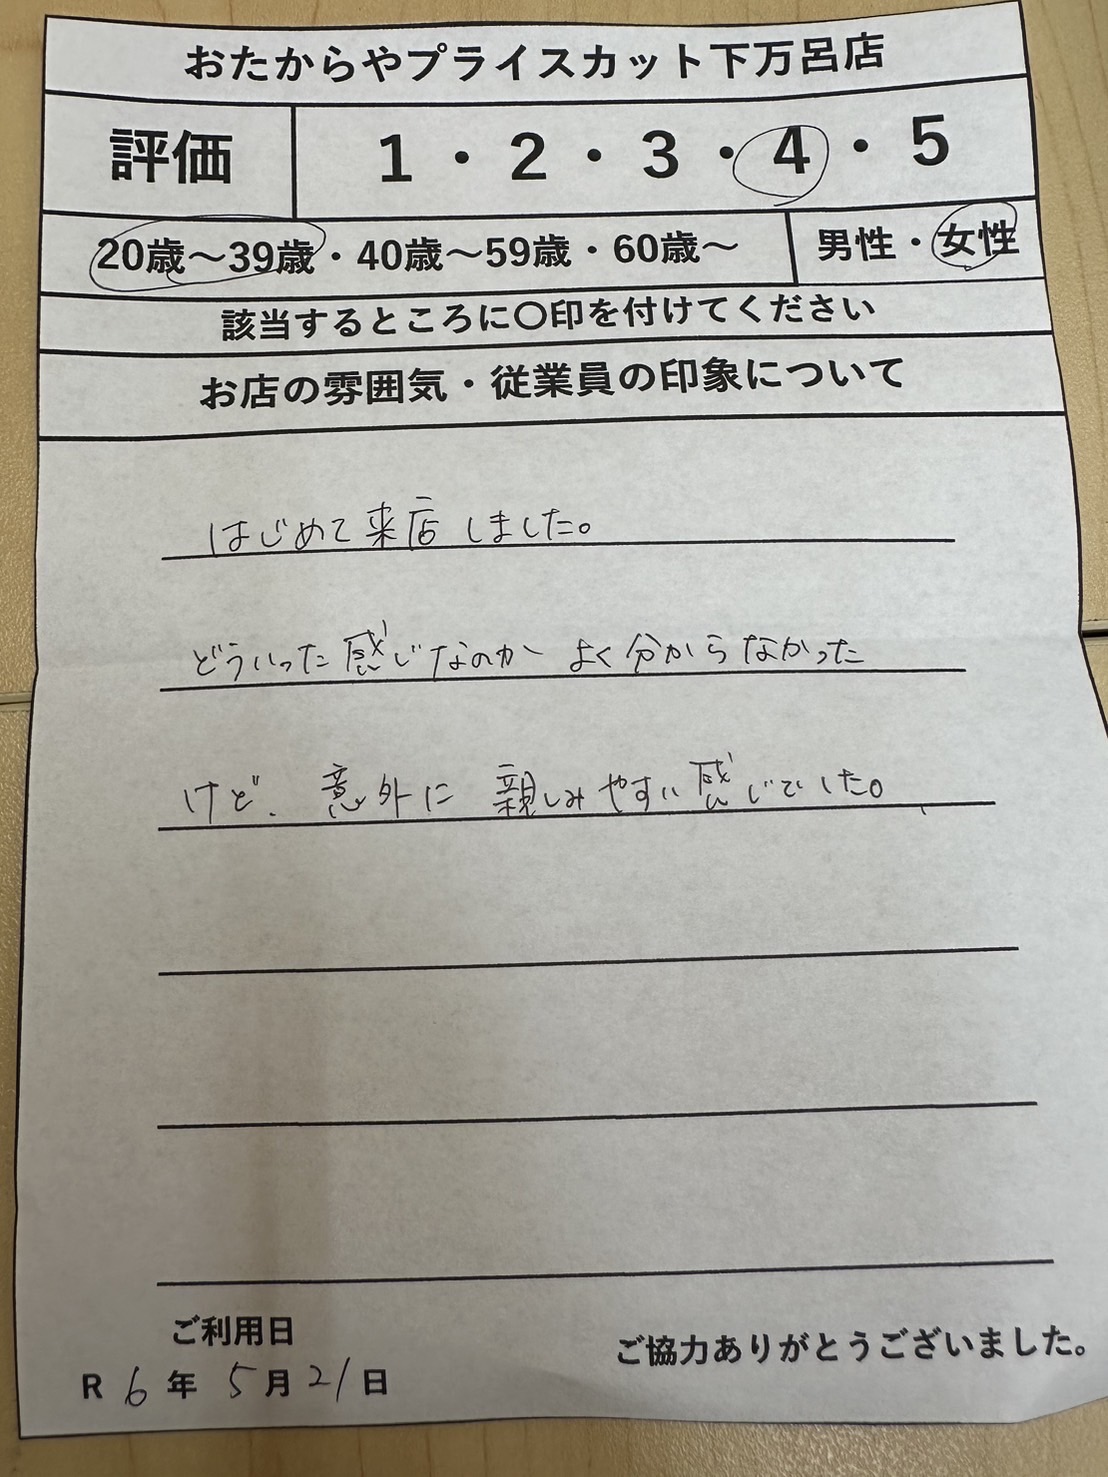 おたからやプライスカット下万呂店
評価 1・2・3・4・5
20歳～39歳・40歳～59歳・60歳～ 男性・女性
該当するところに〇印を付けてください
お店の雰囲気・従業員の印象について
はじめて来店しました。
どういった感じなのか よく分からなかった
けど、意外に 親しみやすい感じでした。
ご利用日
R 6 年 5 月 21 日
ご協力ありがとうございました。